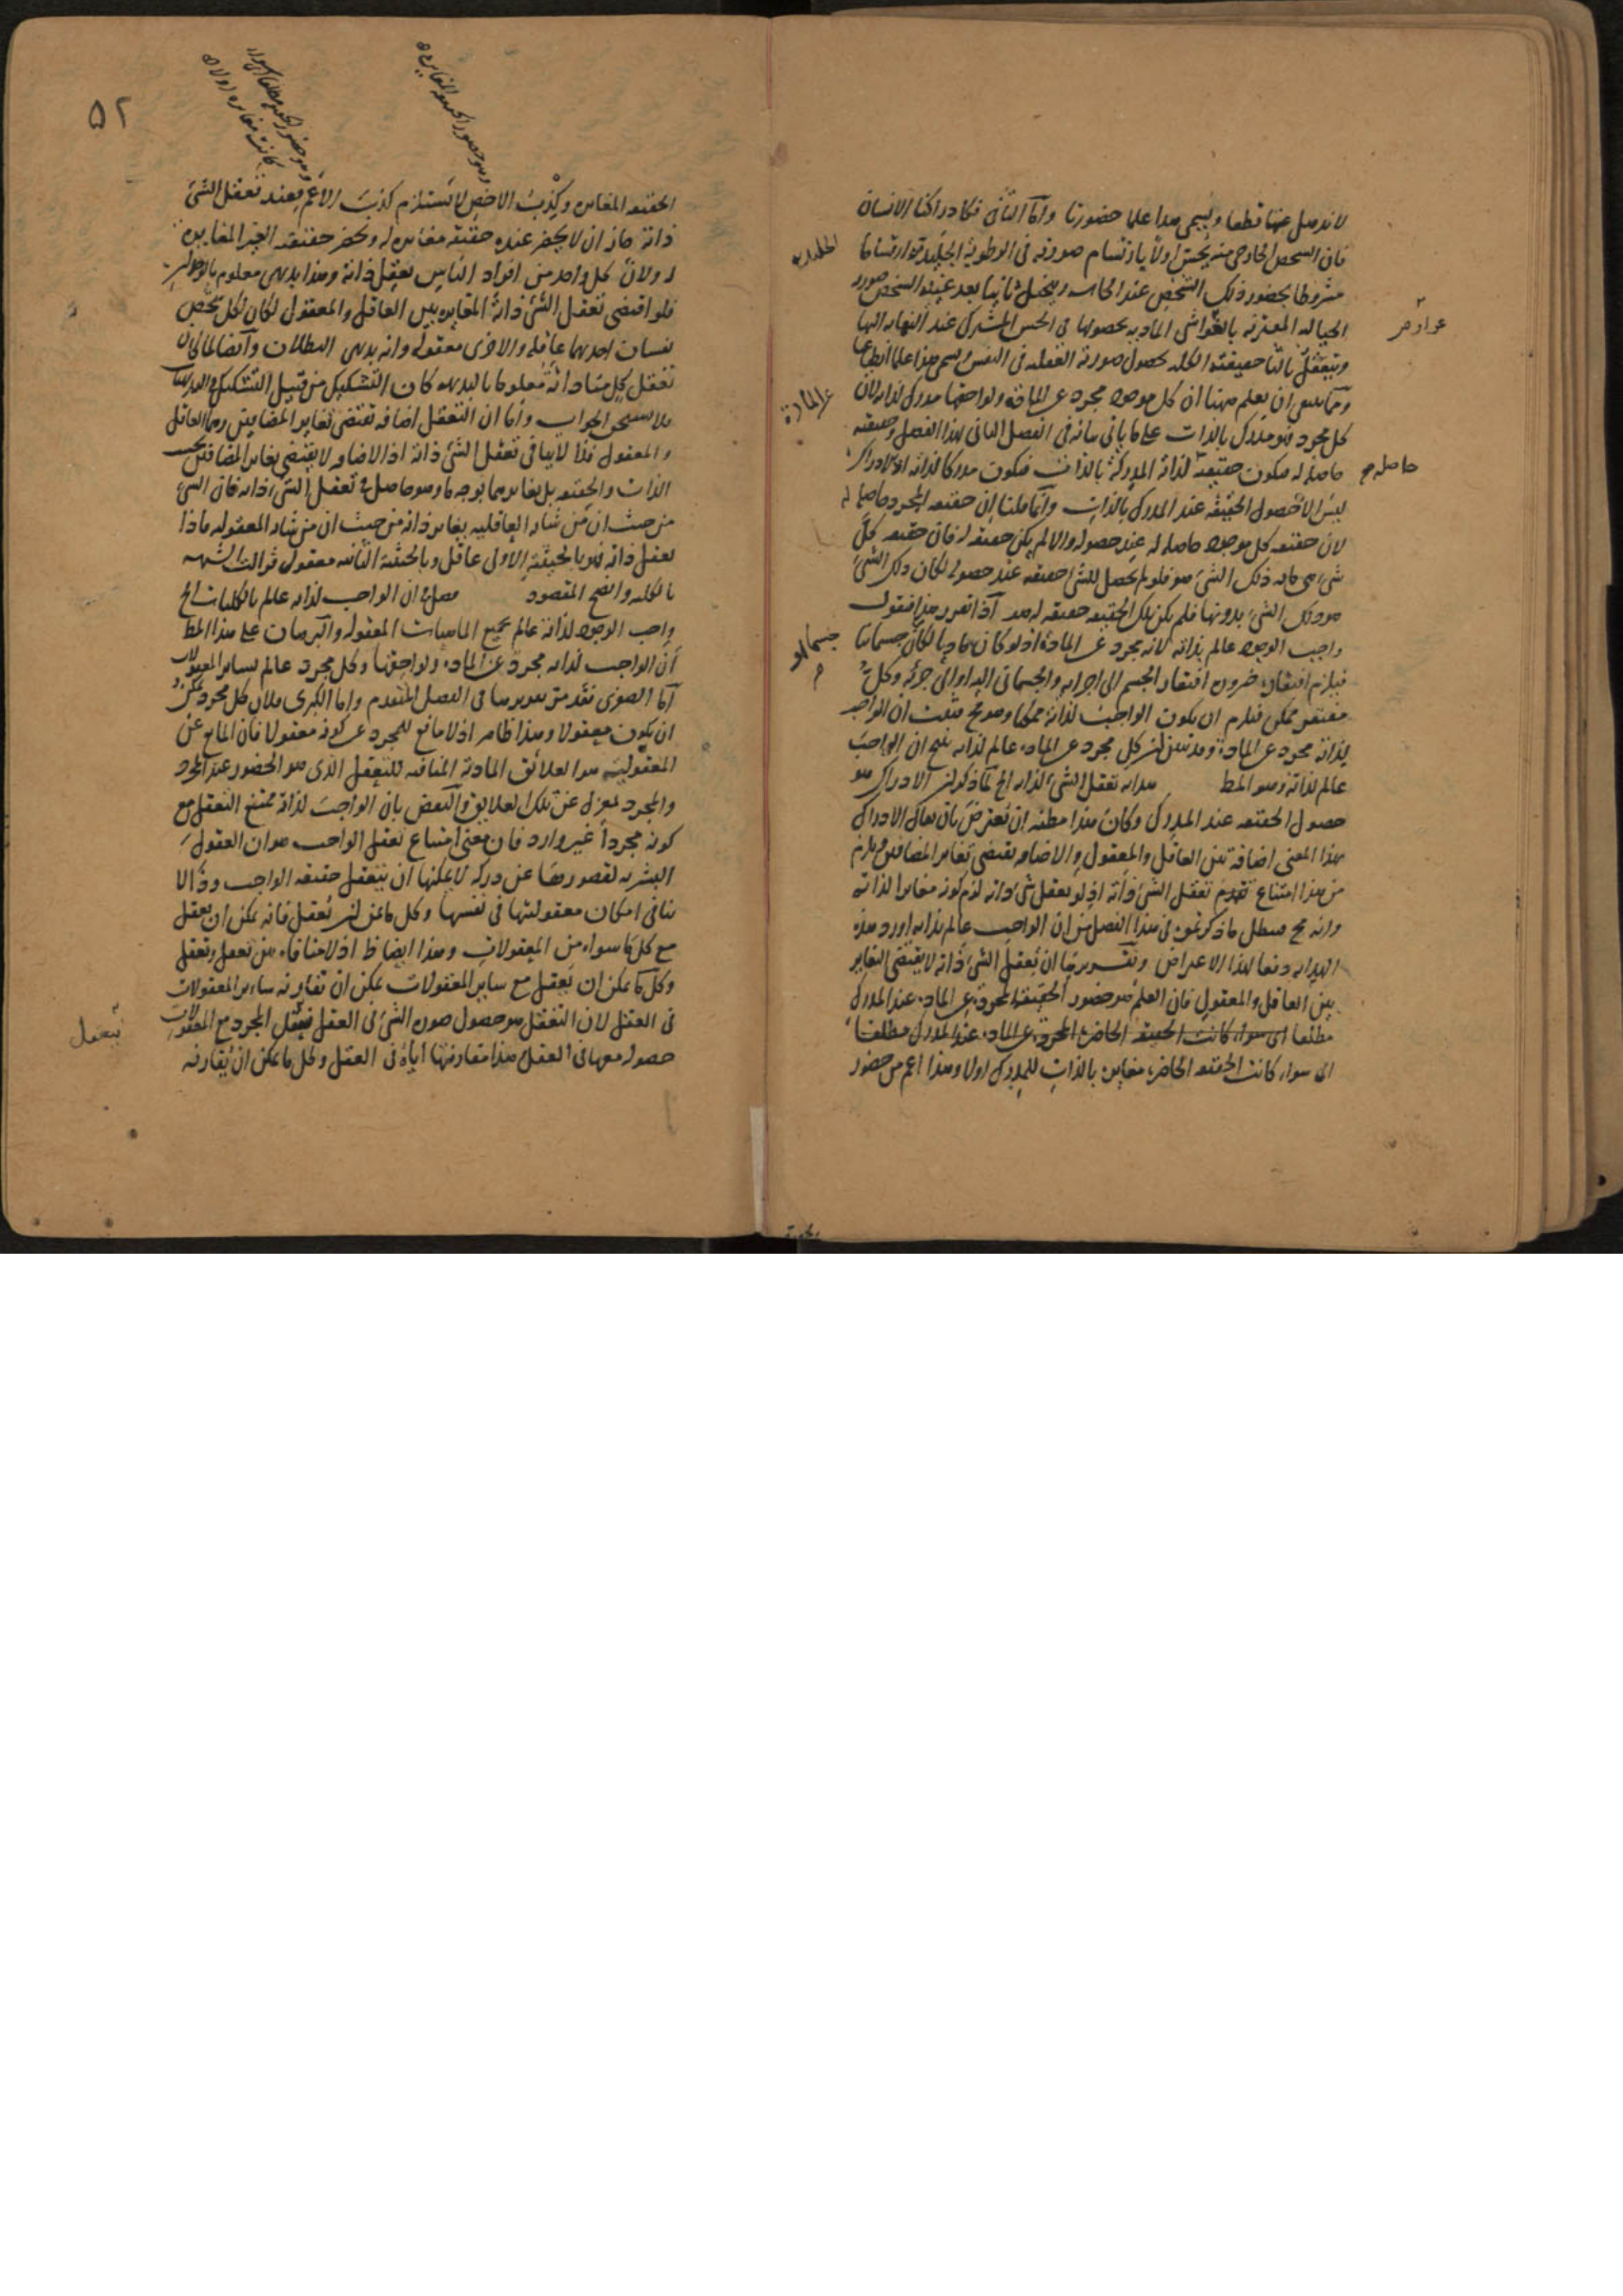 لا نذهل عنها قطعا ويسمى هذا علما حضوريا واما الثانى فكادراكنا الانسان
فان الشخص الخارجى منه يحس اولا بارتسام صورته فى الرطوبة الجليدية ارتساما
مشروطا بحضور ذلك الشخص عند الحاسه ويتخيل ثانيا بعد غيبة الشخص صورة
الخياليه المقترنه بالغواشى الماديه بحصولها فى الحس المشترك عند التهابه اليها
ويتعقل ثالثا حقيقته الكليه بحصول صورته العقليه فى النفس ويسمى هذا علما انطباعيا
ومما ينبغى ان يعلم ههنا ان كل موجود مجرد عن المادة ولواحقها مدرك لذاته لان
كل مجرد فهو مدرك بالذات على ما ياتى بيانه فى الفصل الثانى لهذا الفصل وحقيقته
حاصلة له فيكون حقيقة لذاته المدركة بالذات فيكون مدركا لذاته اذ الادراك
ليس الا حصول الحقيقه عند المدرك بالذات وانما قلنا ان حقيقه المجرد حاصلة له
لان حقيقه كل موجود حاصله له عند حصوله والا لم يكن حقيقه له فان حقيقه كل
شى هى ما به ذلك الشى هو فلو لم يحصل للشى حقيقته عند حصوله لكان ذلك الشى
هو ذلك الشى بدونها فلم يكن تلك الحقيقه حقيقه له هف اذا تقرر هذا فنقول
واجب الوجود عالم بذاته لانه مجرد عن المادة اذ لو كان ماديا لكان جسمانيا
فيلزم افتقاره ضرورة افتقار الجسم الى اجزائه والجسمانى اليه او الى جزئه وكل
مفتقر ممكن فيلزم ان يكون الواجب لذاته ممكنا وهو مح فثبت ان الواجب
لذاته مجرد عن المادة وقد تبين ان كل مجرد عن المادة عالم لذاته ينتج ان الواجب
عالم لذاته وهو المط هدايه تعقل الشى لذاته الخ لما ذكر ان الادراك هو
حصول الحقيقه عند المدرك وكان هذا مظنه ان يعترض بان يقال الادراك
بهذا المعنى اضافة بين العاقل والمعقول والاضافه تقتضى تغاير المضافين ويلزم
من هذا امتناع تعقل الشى ذاته اذ لو يعقل شى ذاته لزم كونه مغايرا لذاته
وانه مح فيبطل ما ذكرتموه فى هذا الفصل من ان الواجب عالم بذاته اورد هذه
الهدايه دفعا لهذا الاعتراض وتقريرها ان تعقل الشى ذاته لا يقتضى التغاير
بين العاقل والمعقول فان العلم هو حضور الحقيقة المجردة عن الماده عند المدرك
مطلقا اى سواء كانت الحقيقه الحاضرة المجردة عن الماده عند المدرك مطلقا
اى سواء كانت الحقيقه الحاضرة مغايرة بالذات للمدرك اولا وهذا اعم من حضور
الجليديه
عن المادة
حاصله
جسما او
٥٢
الحقيقه المغايره وكذب الاخص لا يستلزم كذب الاعم فعند تعقل الشى
ذاته جاز ان لا يحضر عنده حقيقة مغايره له ويحضر حقيقته الغير المغايره
له ولان كل واحد من افراد الناس يعقل ذاته وهذا بديهى معلوم بالوجدان
فلو اقتضى تعقل الشى ذاته المغايره بين العاقل والمعقول لكان لكل شخص
نفسان احديهما عاقلة والاخرى معقولة وانه بديهى البطلان وايضا لما كان
تعقل كل منا ذاته معلوما بالبديهه كان التشكيك من قبيل التشكيك فى البديهيات
فلا يستحق الجواب واما ان التعقل اضافه تقتضى تغاير المضافين وهما العاقل
والمعقول فلا ينافى تعقل الشى ذاته اذ الاضافه لا يقتضى تغاير المضافين بحسب
الذات والحقيقه بل تغايرهما بوجه ما وهو حاصل فى تعقل الشى ذاته فان الشى
من حيث ان من شانه العاقليه يغاير ذاته من حيث ان من شانه المعقوليه فاذا
تعقل ذاته فهو بالحيثية الاولى عاقل وبالحيثية الثانيه معقول فزالت الشبهه
بالكليه واتضح المقصود فصل فى ان الواجب لذاته عالم بالكليات الخ
واجب الوجود لذاته عالم بجميع الماهيات المعقوله والبرهان على هذا المط
ان الواجب لذاته مجرد عن الماده ولواحقها وكل مجرد عالم بساير المعقولات
اما الصغرى فقد مر تقريرها فى الفصل المتقدم واما الكبرى فلان كل مجرد يمكن
ان يكون معقولا وهذا ظاهر اذ لا مانع للمجرد عن كونه معقولا فان المانع عن
المعقولية هو العلائق المادية المنافيه للتعقل الذى هو الحضور عند المجرد
والمجرد بمعزل عن تلك العلايق والنقض بان الواجب لذاته ممتنع التعقل مع
كونه مجردا غير وارد فان معنى امتناع تعقل الواجب هو ان العقول
البشريه لقصورها عن دركه لا يمكنها ان يتعقل حقيقه الواجب وذا لا
ينافى امكان معقوليتها فى نفسها وكل ما يمكن ان يعقل فانه يمكن ان يعقل
مع كل ما سواه من المعقولات وهذا ايضا ظ اذ لا منافاه بين تعقل وتعقل
وكل ما يمكن ان يعقل مع ساير المعقولات يمكن ان تقارنه ساير المعقولات
فى العقل لان التعقل هو حصول صورة الشى فى العقل فتعقل المجرد مع المعقولات
حصوله معها فى العقل هذا مقارنتها اياه فى العقل وكل ما يمكن ان يقارنه